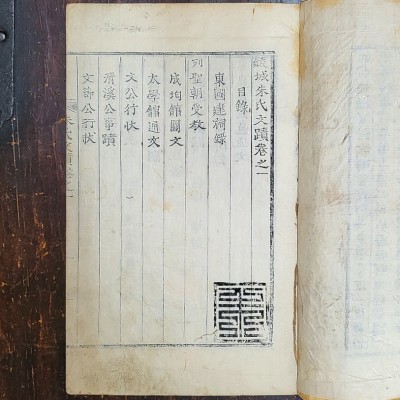 綾城朱氏文蹟卷之一
目錄
東國建祠錄
列聖朝受教
成均館關文
太學館通文
文公行狀
清溪公事蹟
文節公行狀
朱氏文蹟卷之一